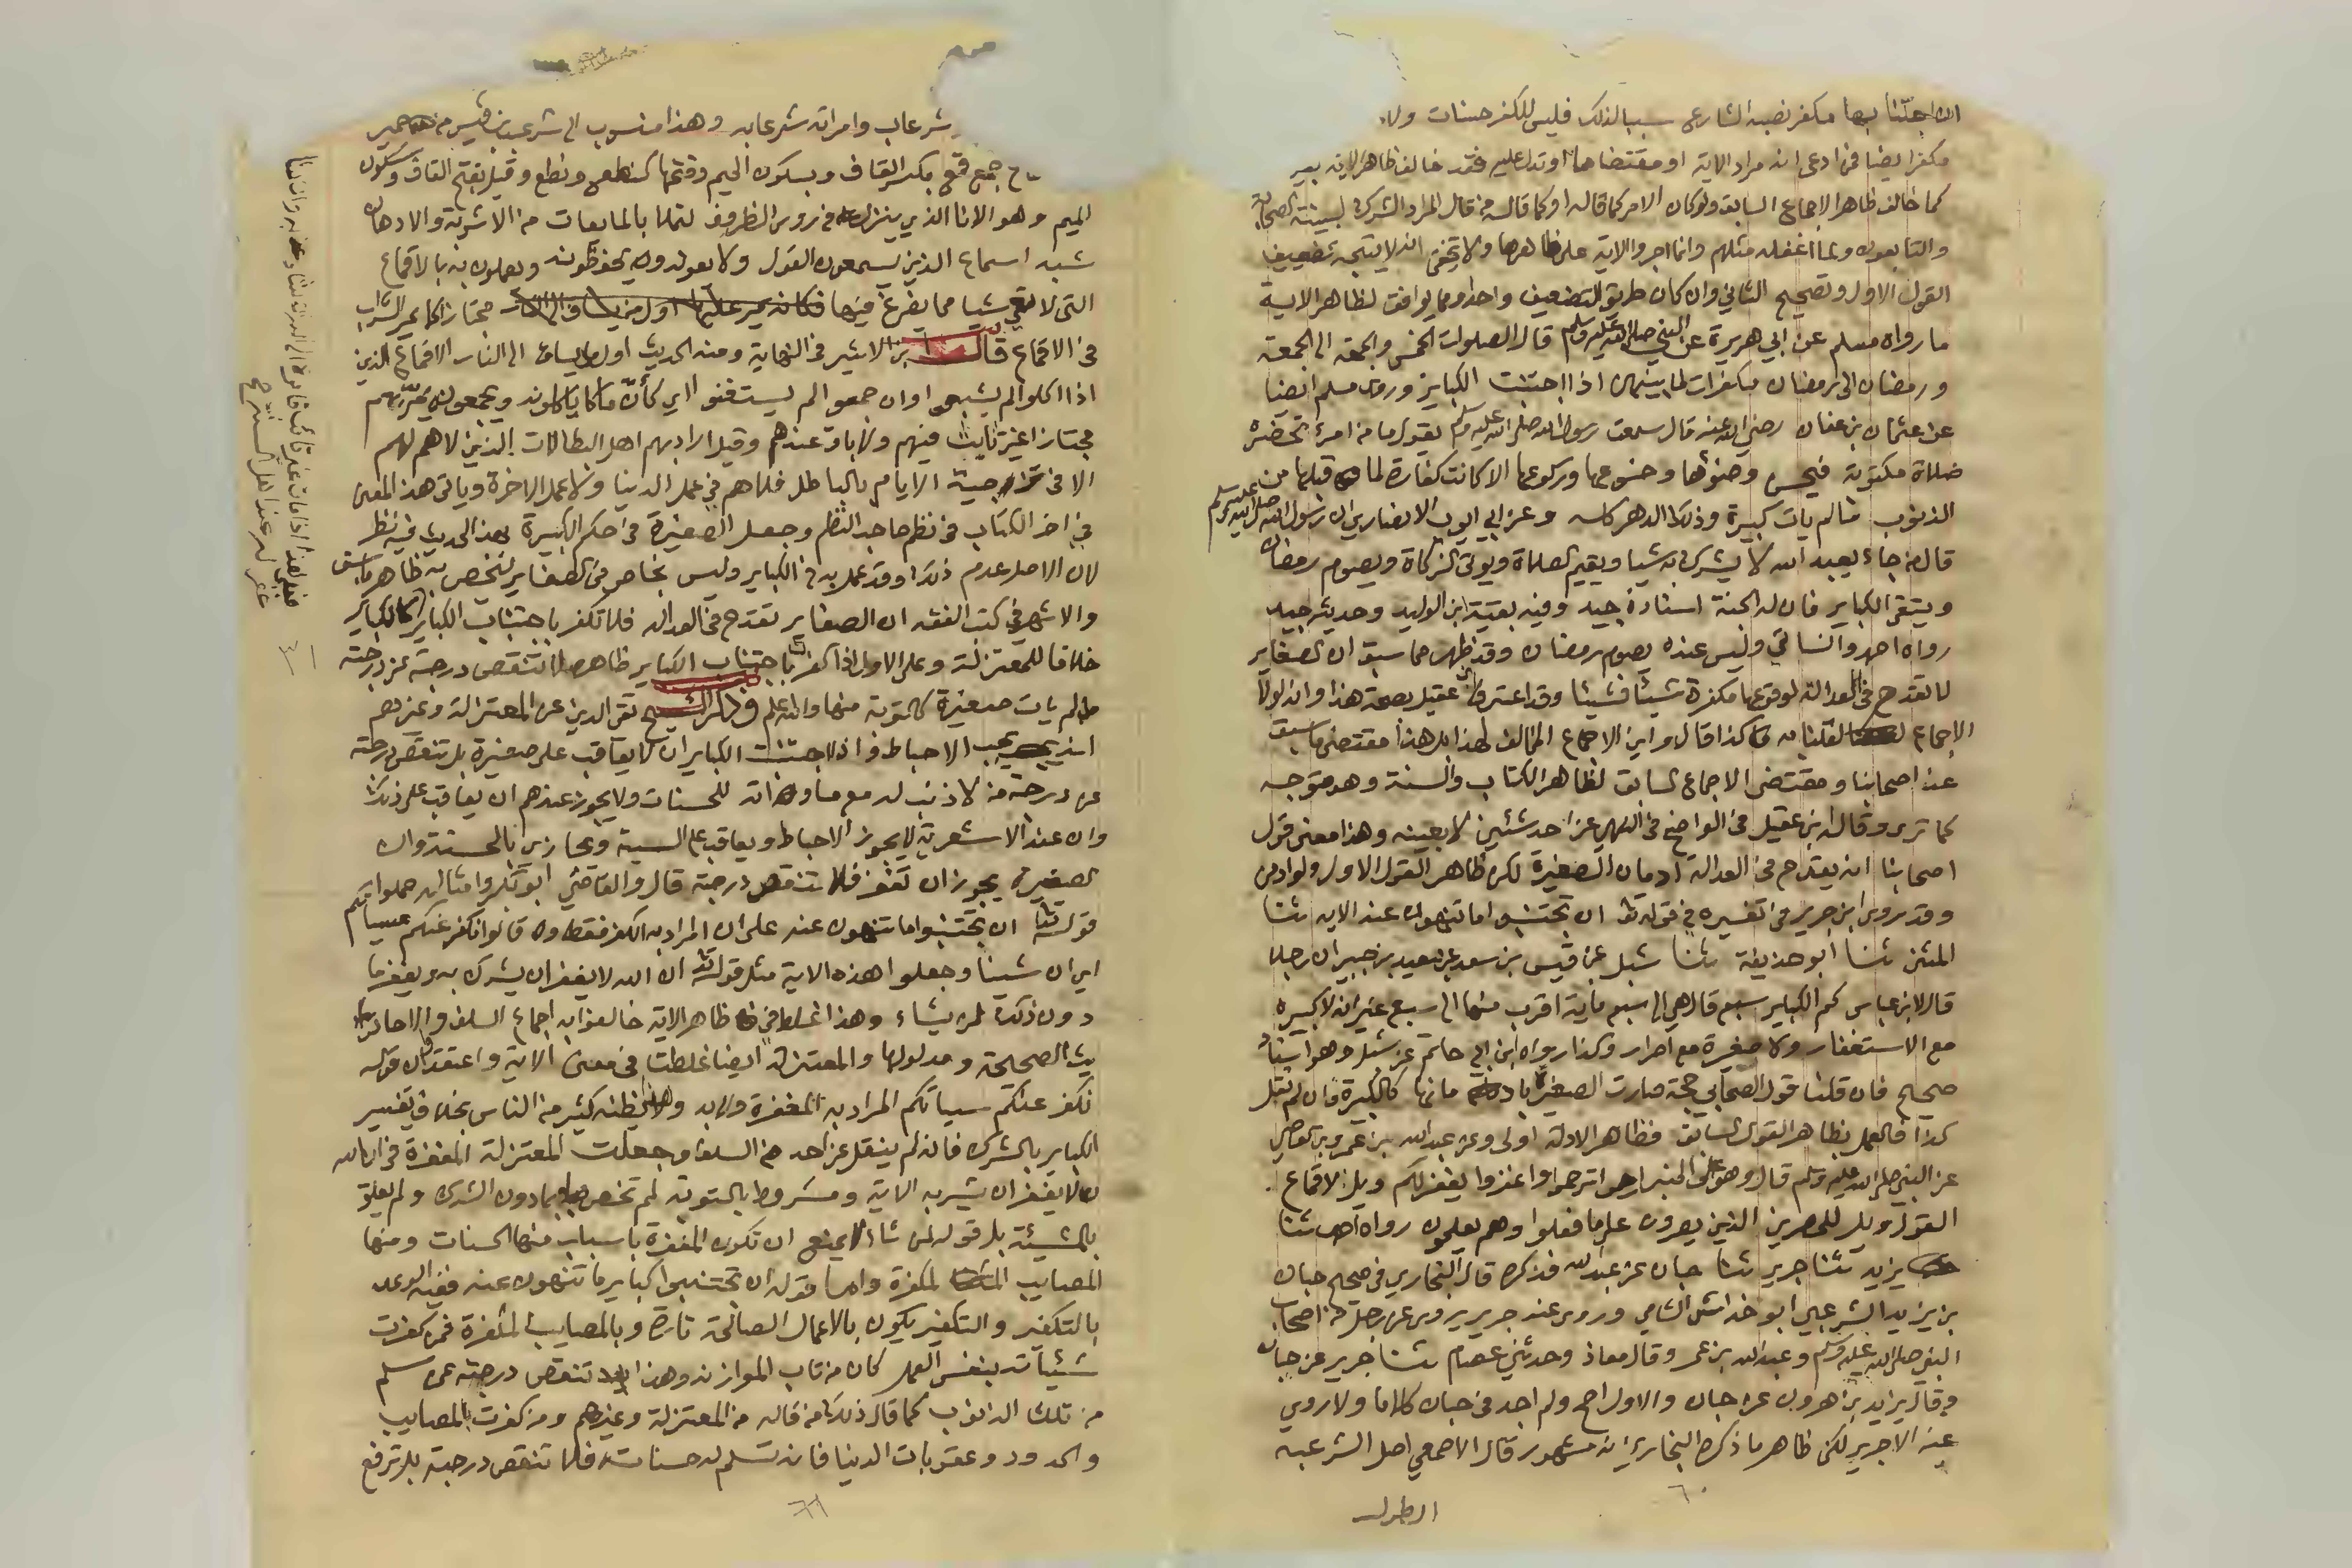 اجتنابها مكفر نصبه الشارع سببا لذلك فليس للكفر حسنات ولا
مكفر ايضا فمن ادعى انه مراد الاية او مقتضاها او تدل عليه فقد خالف ظاهر الاية بغير
كما خالف ظاهر الاجماع السابق ولو كان الامر كما قاله او كما قاله من قال المراد الشرك لبينته الصحابة
والتابعون ولما اغفله مثلهم وانما اجروا الاية على ظاهرها ولا يخفى انه لا يتجه تضعيف
القول الاول وتصحيح الثاني وان كان طريق التضعيف واحد ومما يوافق لظاهر الاية
ما رواه مسلم عن ابي هريرة عن النبي صلى الله عليه وسلم قال الصلوات الخمس والجمعة الى الجمعة
ورمضان الى رمضان مكفرات لما بينهن اذا اجتنبت الكباير وروى مسلم ايضا
عن عثمان بن عفان رضي الله عنه قال سمعت رسول الله صلى الله عليه وسلم يقول ما من امرئ تحضره
صلاة مكتوبة فيحسن وضوءها وخشوعها وركوعها الا كانت كفارة لما قبلها من
الذنوب ما لم يات كبيرة وذلك الدهر كله وعن ابي ايوب الانصاري ان رسول الله صلى الله عليه وسلم
قال من جاء يعبد الله لا يشرك به شيا ويقيم الصلاة ويوتي الزكاة ويصوم رمضان
ويتقي الكباير فان له الجنة اسناده جيد وفيه بقية ابن الوليد وحديثه جيد
رواه احمد والنسائي وليس عنده يصوم رمضان وقد ظهر مما سبق ان الصغاير
لا تقدح في العدالة لوقوعها مكفرة شيئا فشيئا وقد اعترف ابن عقيل بصحة هذا وانه لولا
الاجماع لقلنا به كذا قال واين الاجماع المخالف لهذا بل هذا مقتضى ما سبق
عند اصحابنا ومقتضى الاجماع السابق لظاهر الكتاب والسنة وهو متوجه
كما ترى وقال ابن عقيل في الواضح في النهي عن احد شئين لا بعينه وهذا معنى قول
اصحابنا انه يقدح في العدالة ادمان الصغيرة لكن ظاهر القول الاول ولو ادمن
وقد روى ابن جرير في تفسيره في قوله تعالى ان تجتنبوا ما تنهون عنه الاية ثنا
المثنى ثنا ابو حذيفة ثنا شبل عن قيس بن سعد عن سعيد بن جبير ان رجلا
قال لابن عباس كم الكباير سبع قال هي الى سبع ماية اقرب منها الى سبع غير انه لا كبيرة
مع الاستغفار ولا صغيرة مع اصرار وكذا رواه ابن ابي حاتم عن شبل وهو اسناد
صحيح فان قلنا قول الصحابي حجة صارت الصغيرة بادمانها كالكبيرة وان لم نقل
كذا فالعمل بظاهر القول السابق فظاهر الادلة اولى وعن عبد الله بن عمرو بن العاصي
عن النبي صلى الله عليه وسلم قال وهو على المنبر ارحموا ترحموا واغفروا يغفر لكم ويل لاقماع
القول ويل للمصرين الذين يصرون على ما فعلوا وهم يعلمون رواه احمد ثنا
يزيد ثنا جرير ثنا حبان عن عبد الله فذكره قال البخاري في صحيح حبان
بن يزيد الشرعبي ابو خداش الشامي وروى عنه جرير يروى عن رجل من اصحاب
النبي صلى الله عليه وسلم وعبد الله بن عمر وقال معاذ وحدثني عصام ثنا جرير عن حبان
وقال يزيد بن هرون عن حبان والاول اصح ولم اجد في حبان كلاما ولا روى
عنه الا جرير لكن ظاهر ما ذكره البخاري انه مشهور قال الاصمعي اصل الشرعبه
الطول
٦٠
شرعاب وامراة شرعابه وهذا منسوب الى شرعب بن قيس من حمير
جمع قمع بكسر القاف وبسكون الميم وفتحها كنطع ونطع وقيل بفتح القاف وسكون
الميم وهو الانا الذي ينزل في روس الظروف لتملا بالمايعات من الاشربة والادهان
شبه اسماع الذين يسمعون القول ولا يعونه ويحفظونه ويعملون به بالاقماع
التي لا تعي شيا مما يفرغ فيها فكانه يمر عليها مجتازا كما يمر الشراب
في الاقماع قال ابن الاثير في النهاية ومنه الحديث اول من يساق الى النار الاقماع الذين
اذا اكلوا لم يشبعوا وان جمعوا لم يستغنوا اي كأن ما ياكلونه ويجمعونه يمر بهم
مجتازا غير ثابت فيهم ولا باق عندهم وقيل اراد بهم اهل البطالات الذين لا هم لهم
الا في تزجية الايام بالباطل فلا هم في عمل الدنيا ولا عمل الاخرة وياتي هذا المعنى
في اخر الكتاب في نظم صاحب النظم وجعل الصغيرة في حكم الكبيرة بهذا الحديث فيه نظر
لان الاصل عدم ذلك وقد عمل به في الكباير وليس بخاص في الصغاير ليخص به ظاهر ما سبق
والاشهر في كتب الفقه ان الصغاير تقدح في العدالة فلا تكفر باجتناب الكباير كالكباير
خلافا للمعتزلة وعلى الاول اذا كفرت باجتناب الكباير ظاهره لا تنقص درجته عن درجة
من لم يات صغيرة كالتوبة منها والله اعلم وذكر الشيخ تقي الدين عن المعتزلة وغيرهم
انه يجب الاحباط واذا اجتنبت الكباير ان لا يعاقب على صغيرة بل تنقص درجته
عن درجة من لا ذنب له مع مساواته للحسنات ولا يجوز عندهم ان يعاقب على ذلك
وان عند الاشعرية لا يجوز الاحباط ويعاقب على السيئة ويجازى بالحسنة وان
الصغيرة يجوز ان تغفر فلا تنقص درجته قال والقاضي ابو بكر وامثاله حملوا
قوله تعالى ان تجتنبوا ما تنهون عنه على ان المراد به الكفر فقط وان قالوا نكفر عنكم سيئاتكم
اي ان شينا وجعلوا هذه الاية مثل قوله تعالى ان الله لا يغفر ان يشرك به ويغفر ما
دون ذلك لمن يشاء وهذا غلط في ظاهر الاية خالفوا به اجماع السلف والاحاد
يث الصحيحة ومدلولها والمعتزلة ايضا غلطت في معنى الاية واعتقدوا ان قوله
نكفر عنكم سيياتكم المراد به المغفرة ولابد وهذا يظنه كثير من الناس بخلاف تفسير
الكباير بالشرك فانه لم ينقل عن احد من السلف وجعلت المعتزلة المغفرة في ان الله
لا يغفر ان يشرك به الاية ومشروط بالتوبة لم تخص بما دون الشرك ولم يعلق
بالمشيئة بل قوله لمن شاء لا يمنع ان تكون المغفرة باسباب منها الحسنات ومنها
المصايب المكفرة واما قوله ان تجتنبوا كباير ما تنهون عنه ففيه الوعد
بالتكفير والتكفير يكون بالاعمال الصالحة تارة وبالمصايب المكفرة فمن كفرت
سيئاته بنفس العمل كان من باب الموازنة وهذا تنقص درجته عن سلم
من تلك الذنوب كما قال ذلك من قاله من المعتزلة وغيرهم ومن كفرت بالمصايب
والحدود وعقوبات الدنيا فانه تسلم له حسناته فلا تنقص درجته بل ترفع
٦١